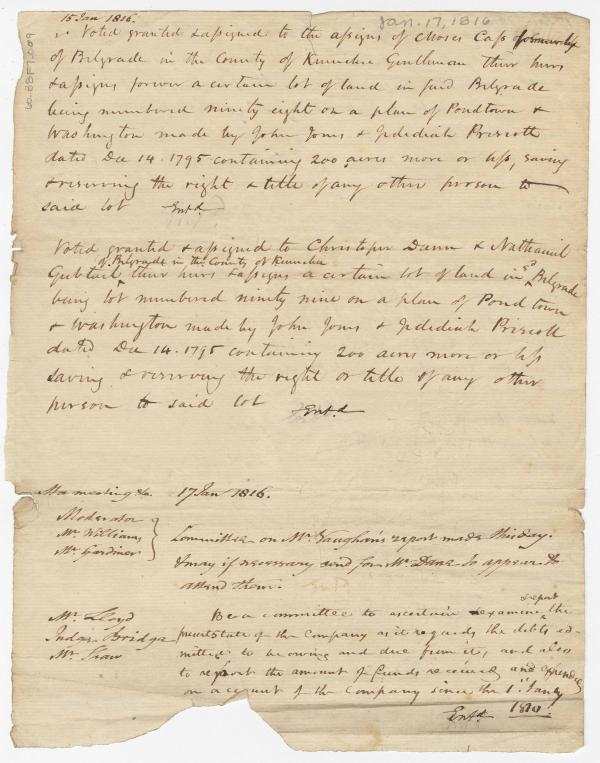 15 Jan 1816.
Jan. 17, 1816
Voted granted & assigned to the assigns of Moses Cass formerly
of Belgrade in the County of Kennebec Gentleman their heirs
& assigns forever a certain lot of land in said Belgrade
being numbered ninety eight on a plan of Pondtown &
Washington made by John Jones & Jedediah Prescott
dated Dec 14. 1795 containing 200 acres more or less, saving
& reserving the right & title of any other person to
said lot Entd.
Voted granted & assigned to Christopher Dunn & Nathaniel
of Belgrade in the County of Kennebec
Gubtail their heirs & assigns a certain lot of land in sd Belgrade
being lot numbered ninety nine on a plan of Pondtown
& Washington made by John Jones & Jedediah Prescott
dated Dec 14. 1795 containing 200 acres more or less
saving & reserving the right or title of any other
person to said lot Entd
At a meeting &c. 17 Jan 1816.
Moderator
Mr. Williams
Mr. Gardiner
Committee on Mr Vaughan's report made this day.
& may if necessary send for Mr Dane to appear &
attend them.
Mr. Lloyd
Judge Bridge
Mr. Shaw
report
Be a committee to ascertain examine & the
present state of the Company as it regards the debts ad-
mitted to be owing and due from it, and also
to report the amount of funds received and expended
on account of the Company since the 1st Jany
Entd 1810.
60-88F1.009